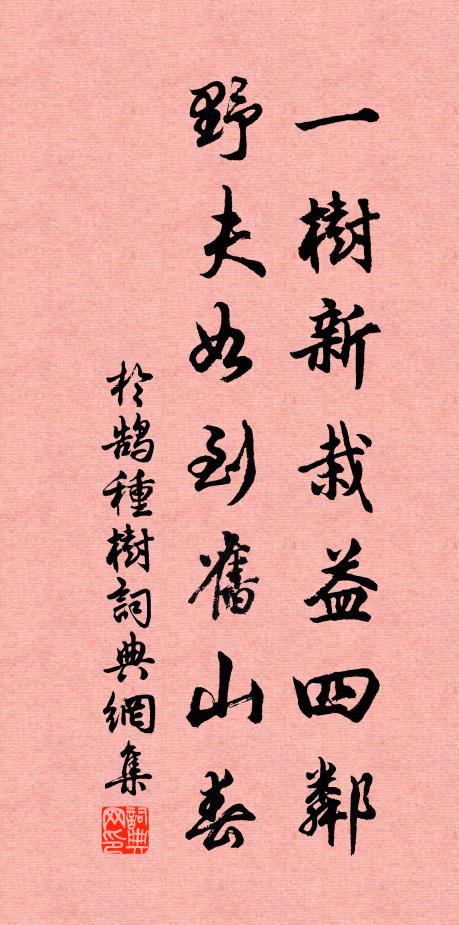 一樹新栽益四鄰
野夫如到舊山春
於鵠種樹詞典網集
詞典网印